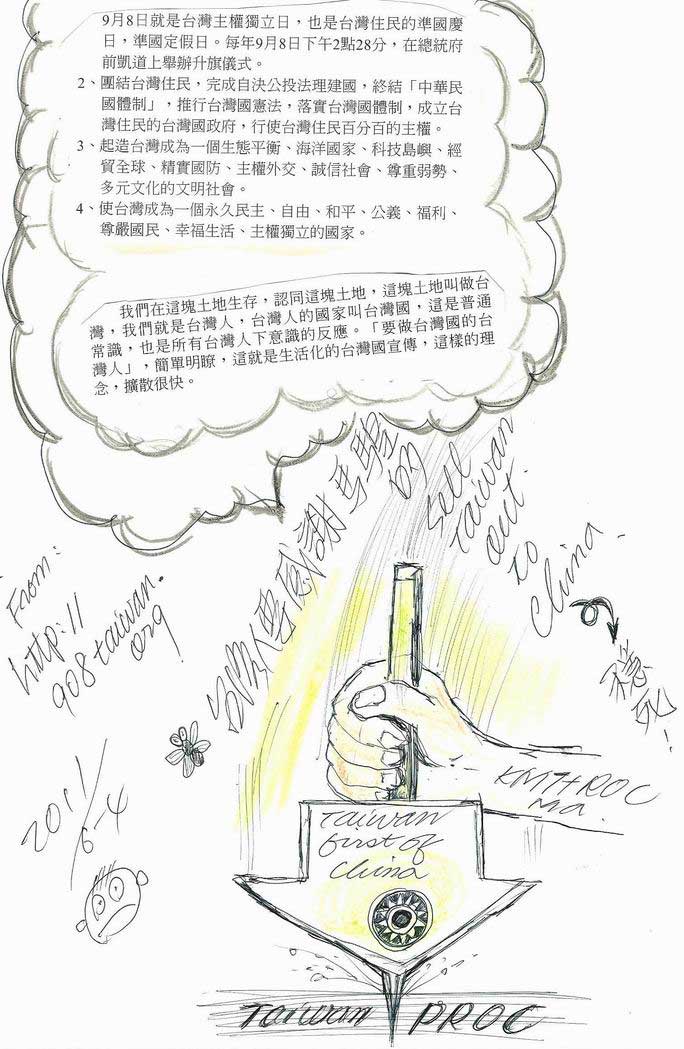 9月8日就是台灣主權獨立日，也是台灣住民的準國慶
日，準國定假日。每年9月8日下午2點28分，在總統府
前凱道上舉辦升旗儀式。
2、團結台灣住民，完成自決公投法理建國，終結「中華民
國體制」，推行台灣國憲法，落實台灣國體制，成立台
灣住民的台灣國政府，行使台灣住民百分百的主權。
3、起造台灣成為一個生態平衡、海洋國家、科技島嶼、經
貿全球、精實國防、主權外交、誠信社會、尊重弱勢、
多元文化的文明社會。
4、使台灣成為一個永久民主、自由、和平、公義、福利、
尊嚴國民、幸福生活、主權獨立的國家。
我們在這塊土地生存，認同這塊土地，這塊土地叫做台
灣，我們就是台灣人，台灣人的國家叫台灣國，這是普通
常識，也是所有台灣人下意識的反應。「要做台灣國的台
灣人」，簡單明瞭，這就是生活化的台灣國宣傳，這樣的理
念，擴散很快。
感謝馬
的
Sell
Taiwan
out
to
China.
穩死!
From:
http://
908taiwan.
org
2011/
6-4
KMT+ROC
Ma.
Taiwan
first of
China
Taiwan PROC